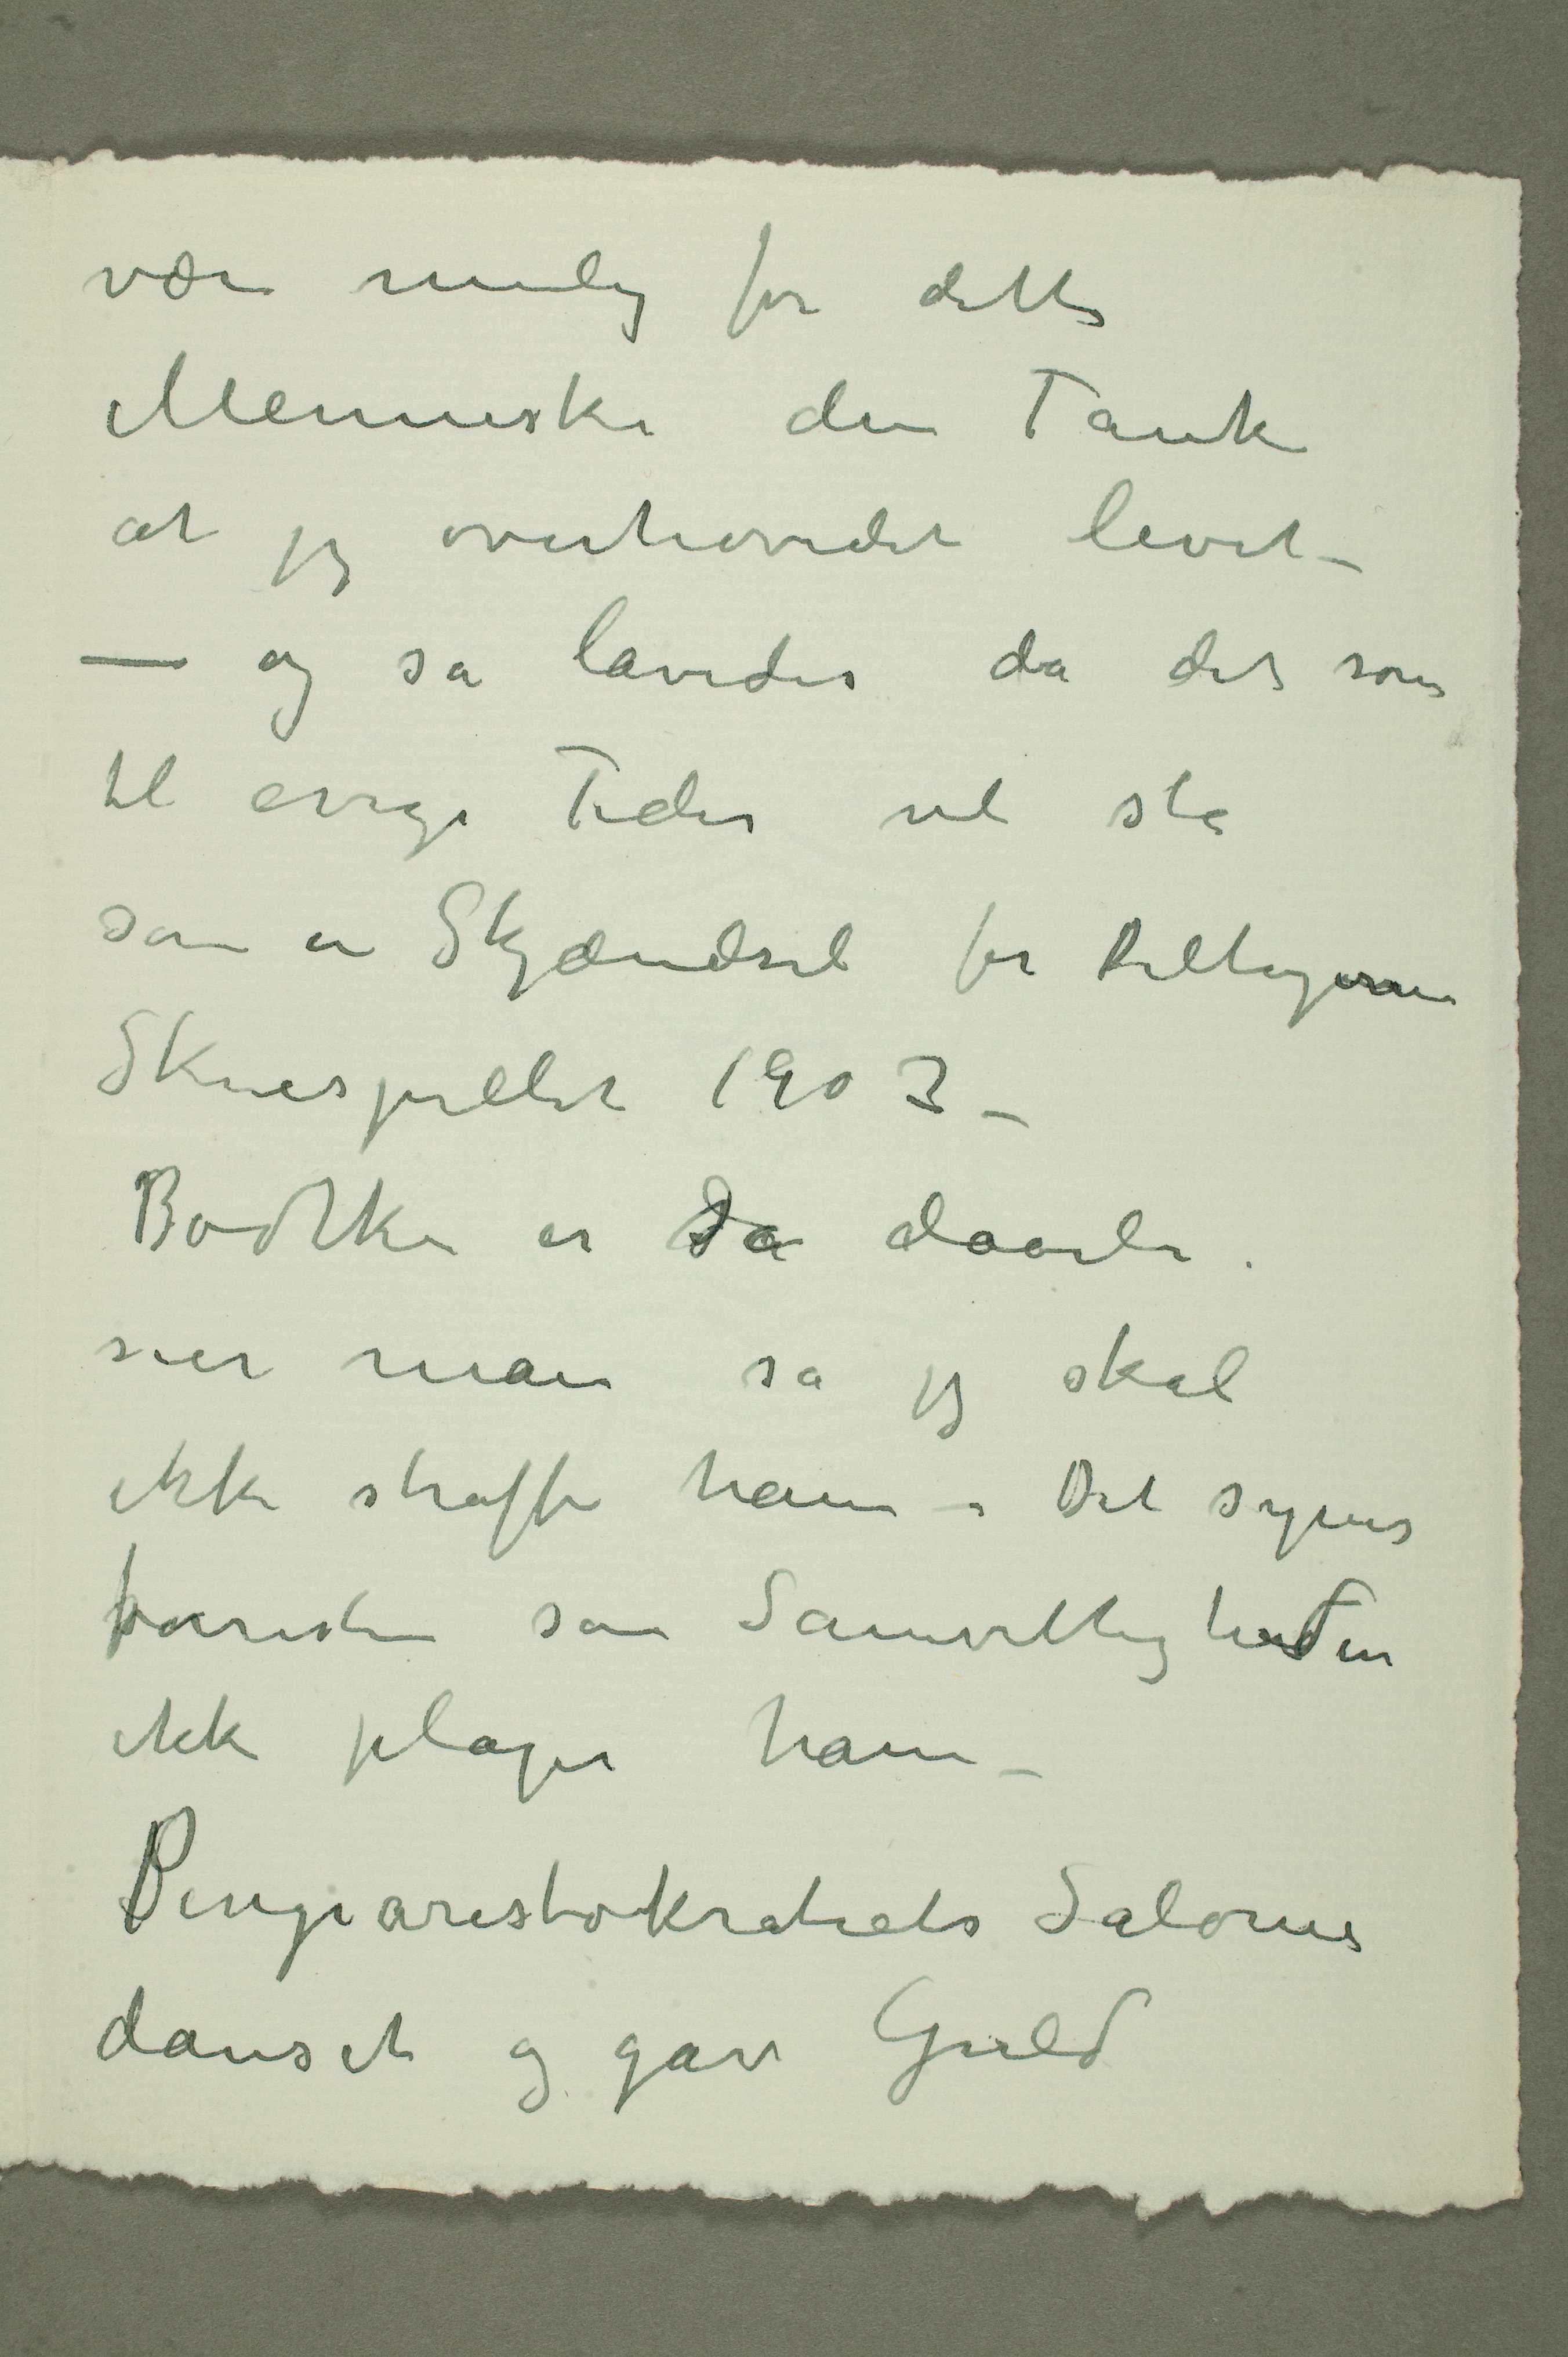 være mulig for dette
Menneske den Tanke
at jeg overhovedet levet –
— og så lavedes da det som
til evige Tider vil stå
som en Skjændsel for Deltagerne
Skuespillet 1903 –
Bødtker er da daarlig.
sier man så jeg skal
ikke straffe ham – Det synes
forresten som Samvittigheden
ikke plager ham –
Pengearistokratiets Salome
danset og gav Guld